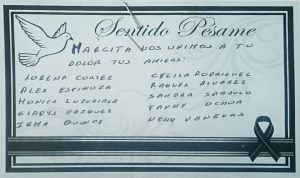 Sentido Pésame
MARGITA NOS UNIMOS A TU
DOLOR TUS AMIGAS:
LORENA CORTEZ
ALEX ESPINOZA
MONICA LUZURIAGA
GLADYS VAZQUEZ
IRMA QUIROZ
CECILA RODRIGUEZ
RAQUEL ALVAREZ
SANDRA SARANGO
FANNY OCHOA
NELLY VANEGAS